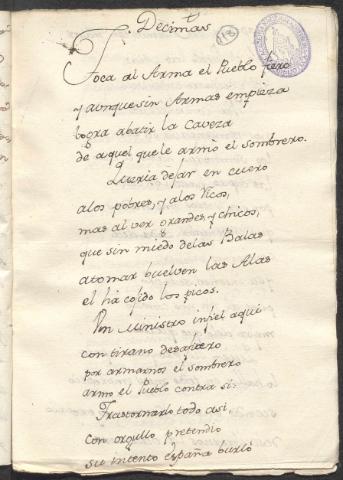 Decimas
118
Toca al Arma el Pueblo fiero
y aunque sin Armas empieza
logra abatir la Caveza
de aquel que le armó el sombrero.
Queria dejar en cuero
a los pobres, y a los ricos,
mas al ver grandes, y chicos,
que sin miedo de las Balas
a tomar buelven las Alas
el ha cojido los picos.
Un Ministro infiel aqui
con tirano desafuero
por armarnos el sombrero
armo el Pueblo contra si
Trastornarlo todo asi
con orgullo pretendio
su intento España burló